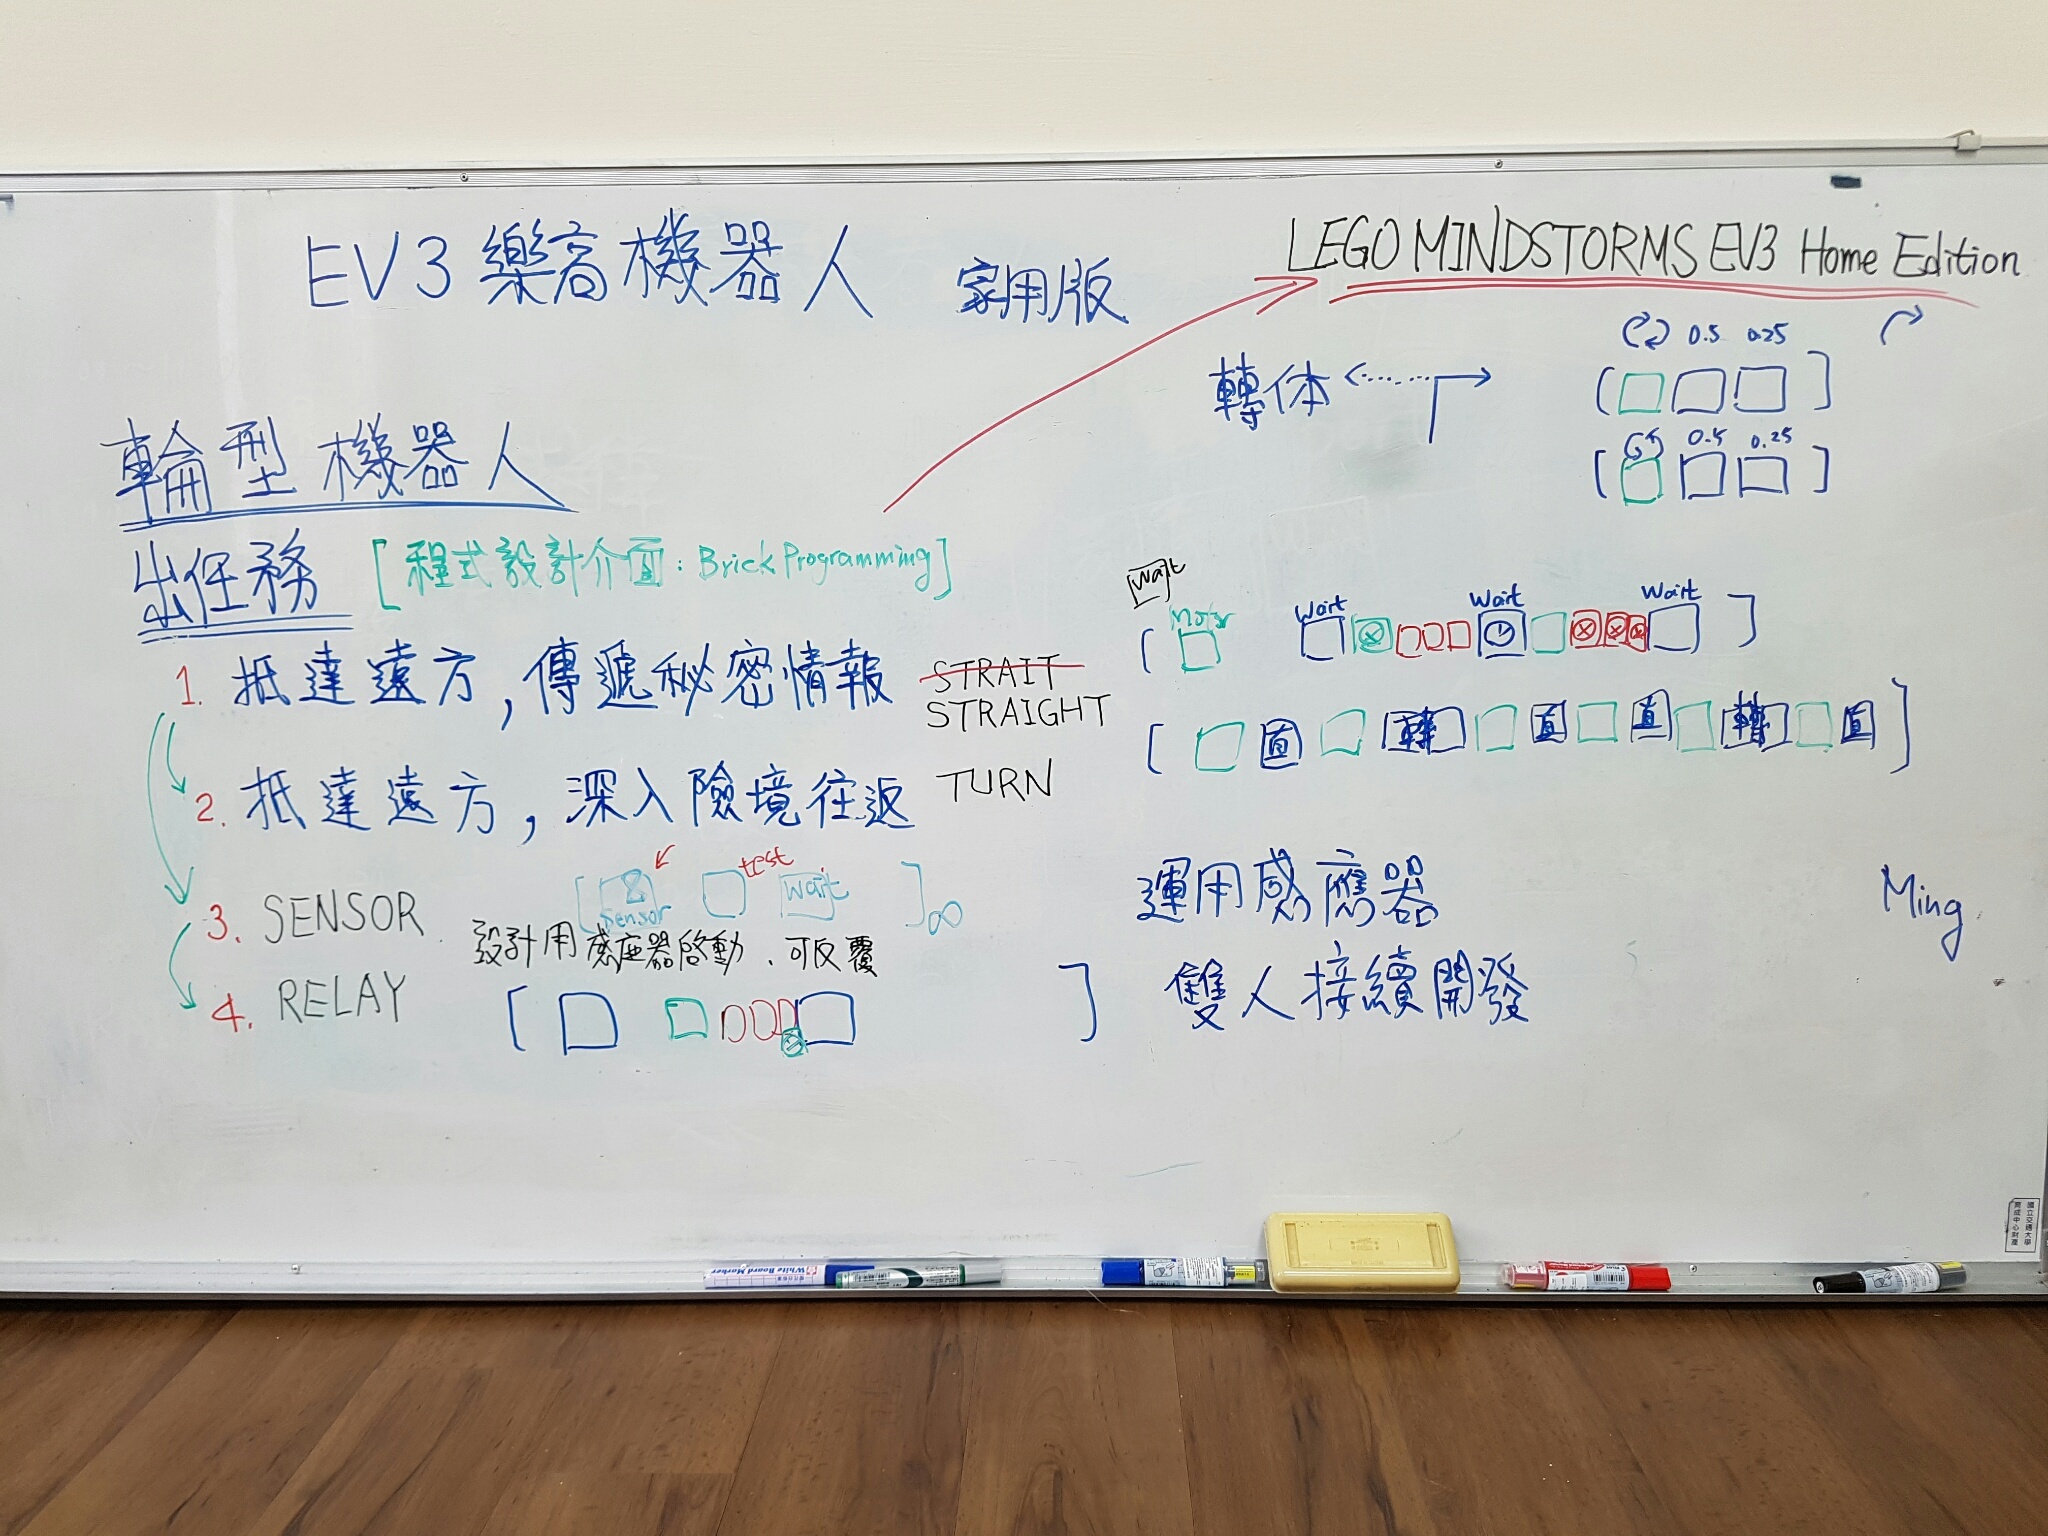 EV3樂高機器人 家用版
LEGO MINDSTORMS EV3 Home Edition
輪型機器人
出任務
[程式設計介面:Brick Programming]
1. 抵達遠方,傳遞秘密情報
STRAIT
STRAIGHT
2. 抵達遠方,深入險境往返
TURN
3. SENSOR
[Sensor test Wait]∞
設計用感應器啓動、可反覆
4. RELAY
轉体
0.5 0.25
0.5 0.25
Wait
[Motor Wait Wait Wait]
[直 轉 直 直 轉 直]
運用感應器
雙人接續開發
Ming
White Board Marker
國立交通大學